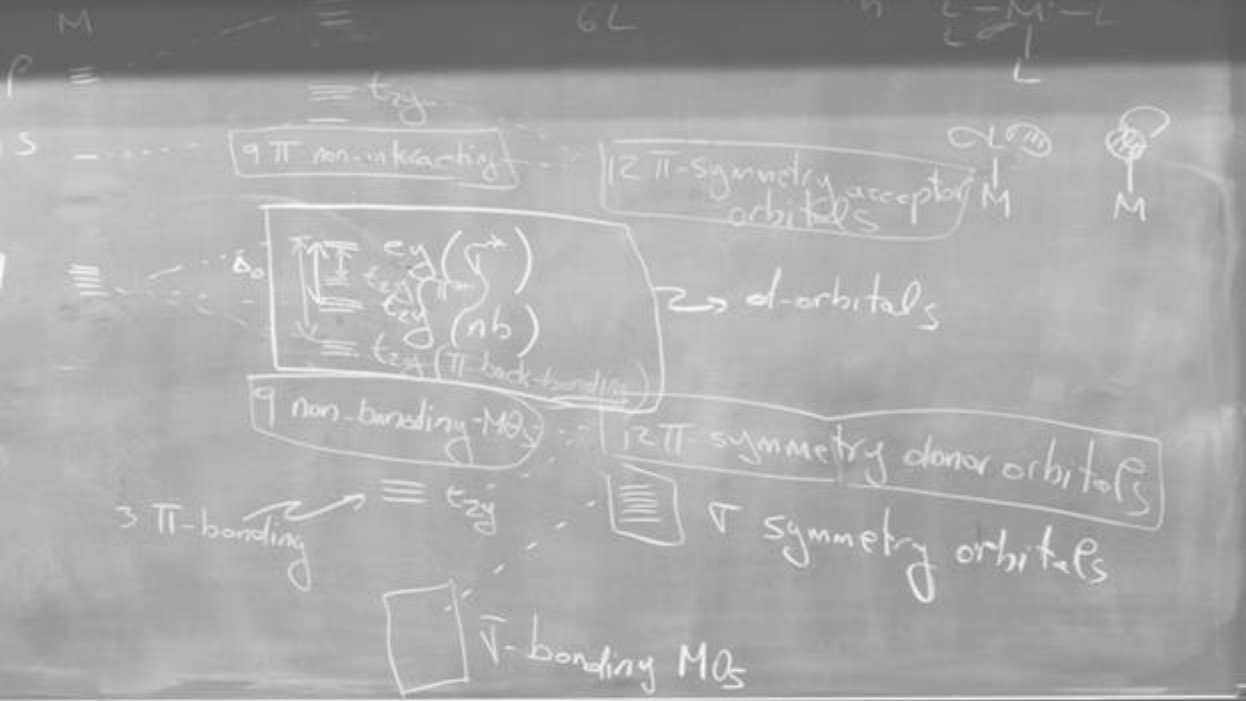 M 6L L-M-L
L L
p t2g
s 9 π non-interacting 12 π-symmetry acceptor
orbitals M M
Δo eg (σ*)
t2g (π*) d-orbitals
t2g (nb)
t2g (π-back-bonding)
9 non-bonding-MOs 12 π-symmetry donor orbitals
3 π-bonding t2g σ symmetry orbitals
σ-bonding MOs